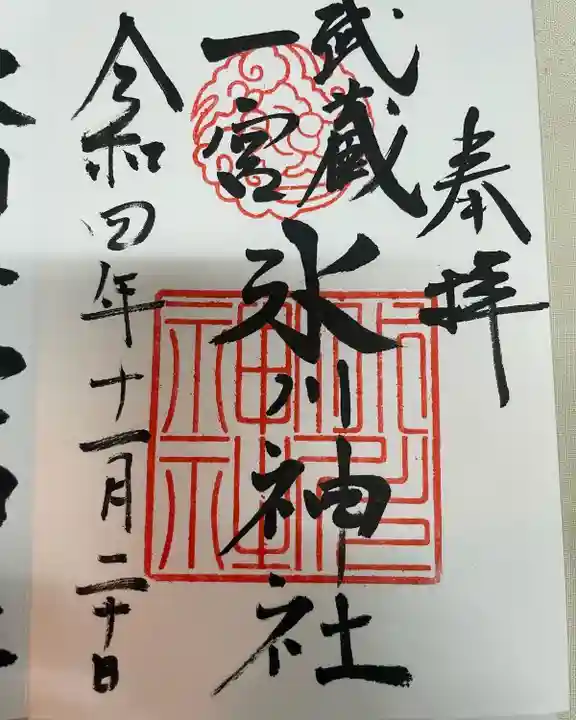 奉拝
武蔵
一宮
氷川神社
令和四年十一月二十日
氷川
神社